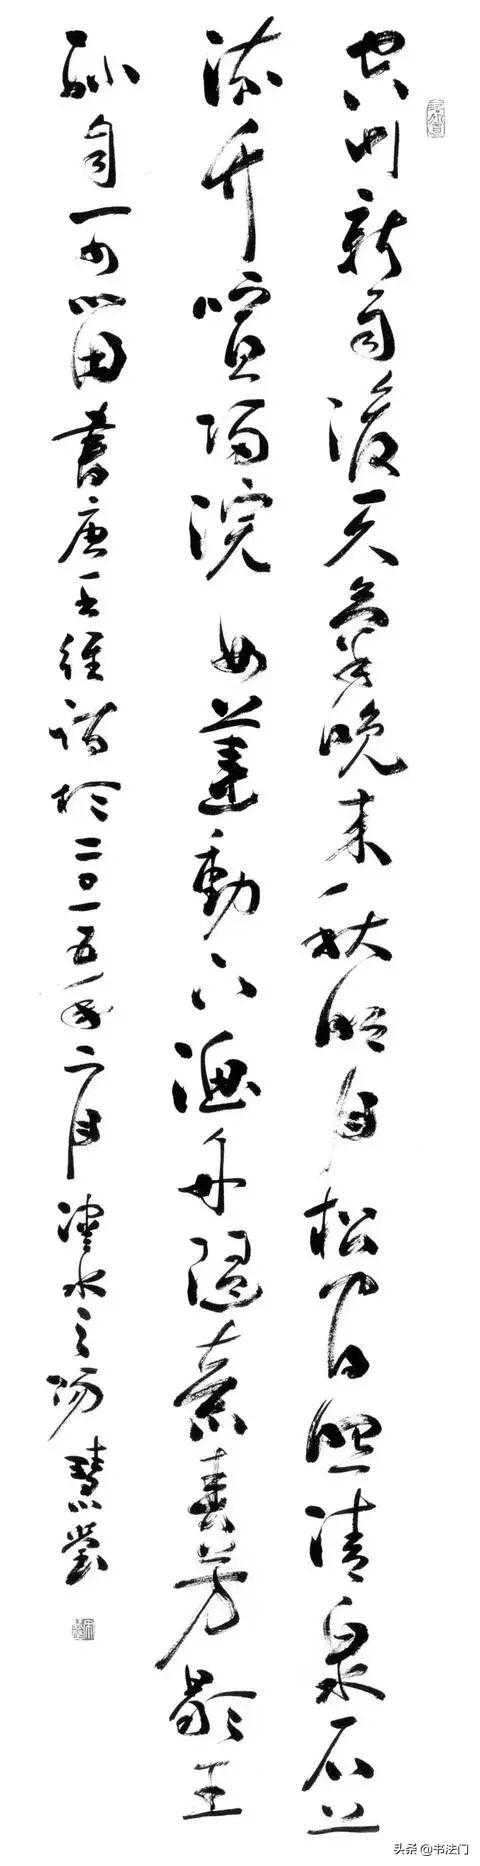 空山新雨後天氣晚来秋明月松間照清泉石上
流竹喧歸浣女蓮動下漁舟隨意春芳歇王
孫自可留書唐王維詩於二〇一五年月水之陽慧瑩
头条 @书法门